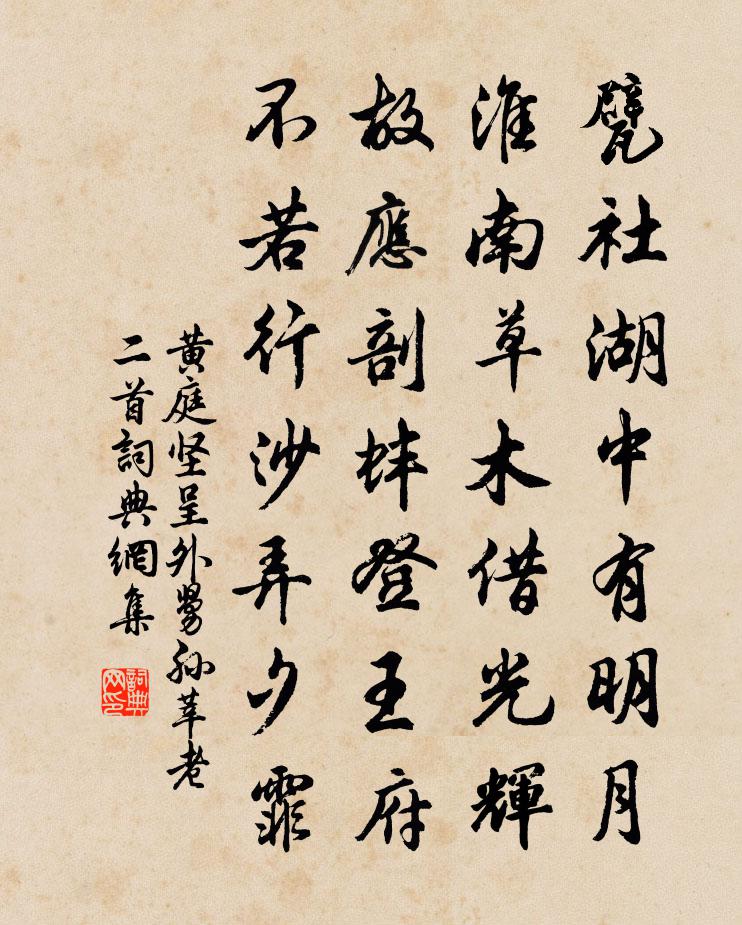 甓社湖中有明月
淮南草木借光輝
故應剖蚌登王府
不若行沙弄夕霏
黄庭坚呈外舅孙莘老
二首詞典網集
詞典
网印